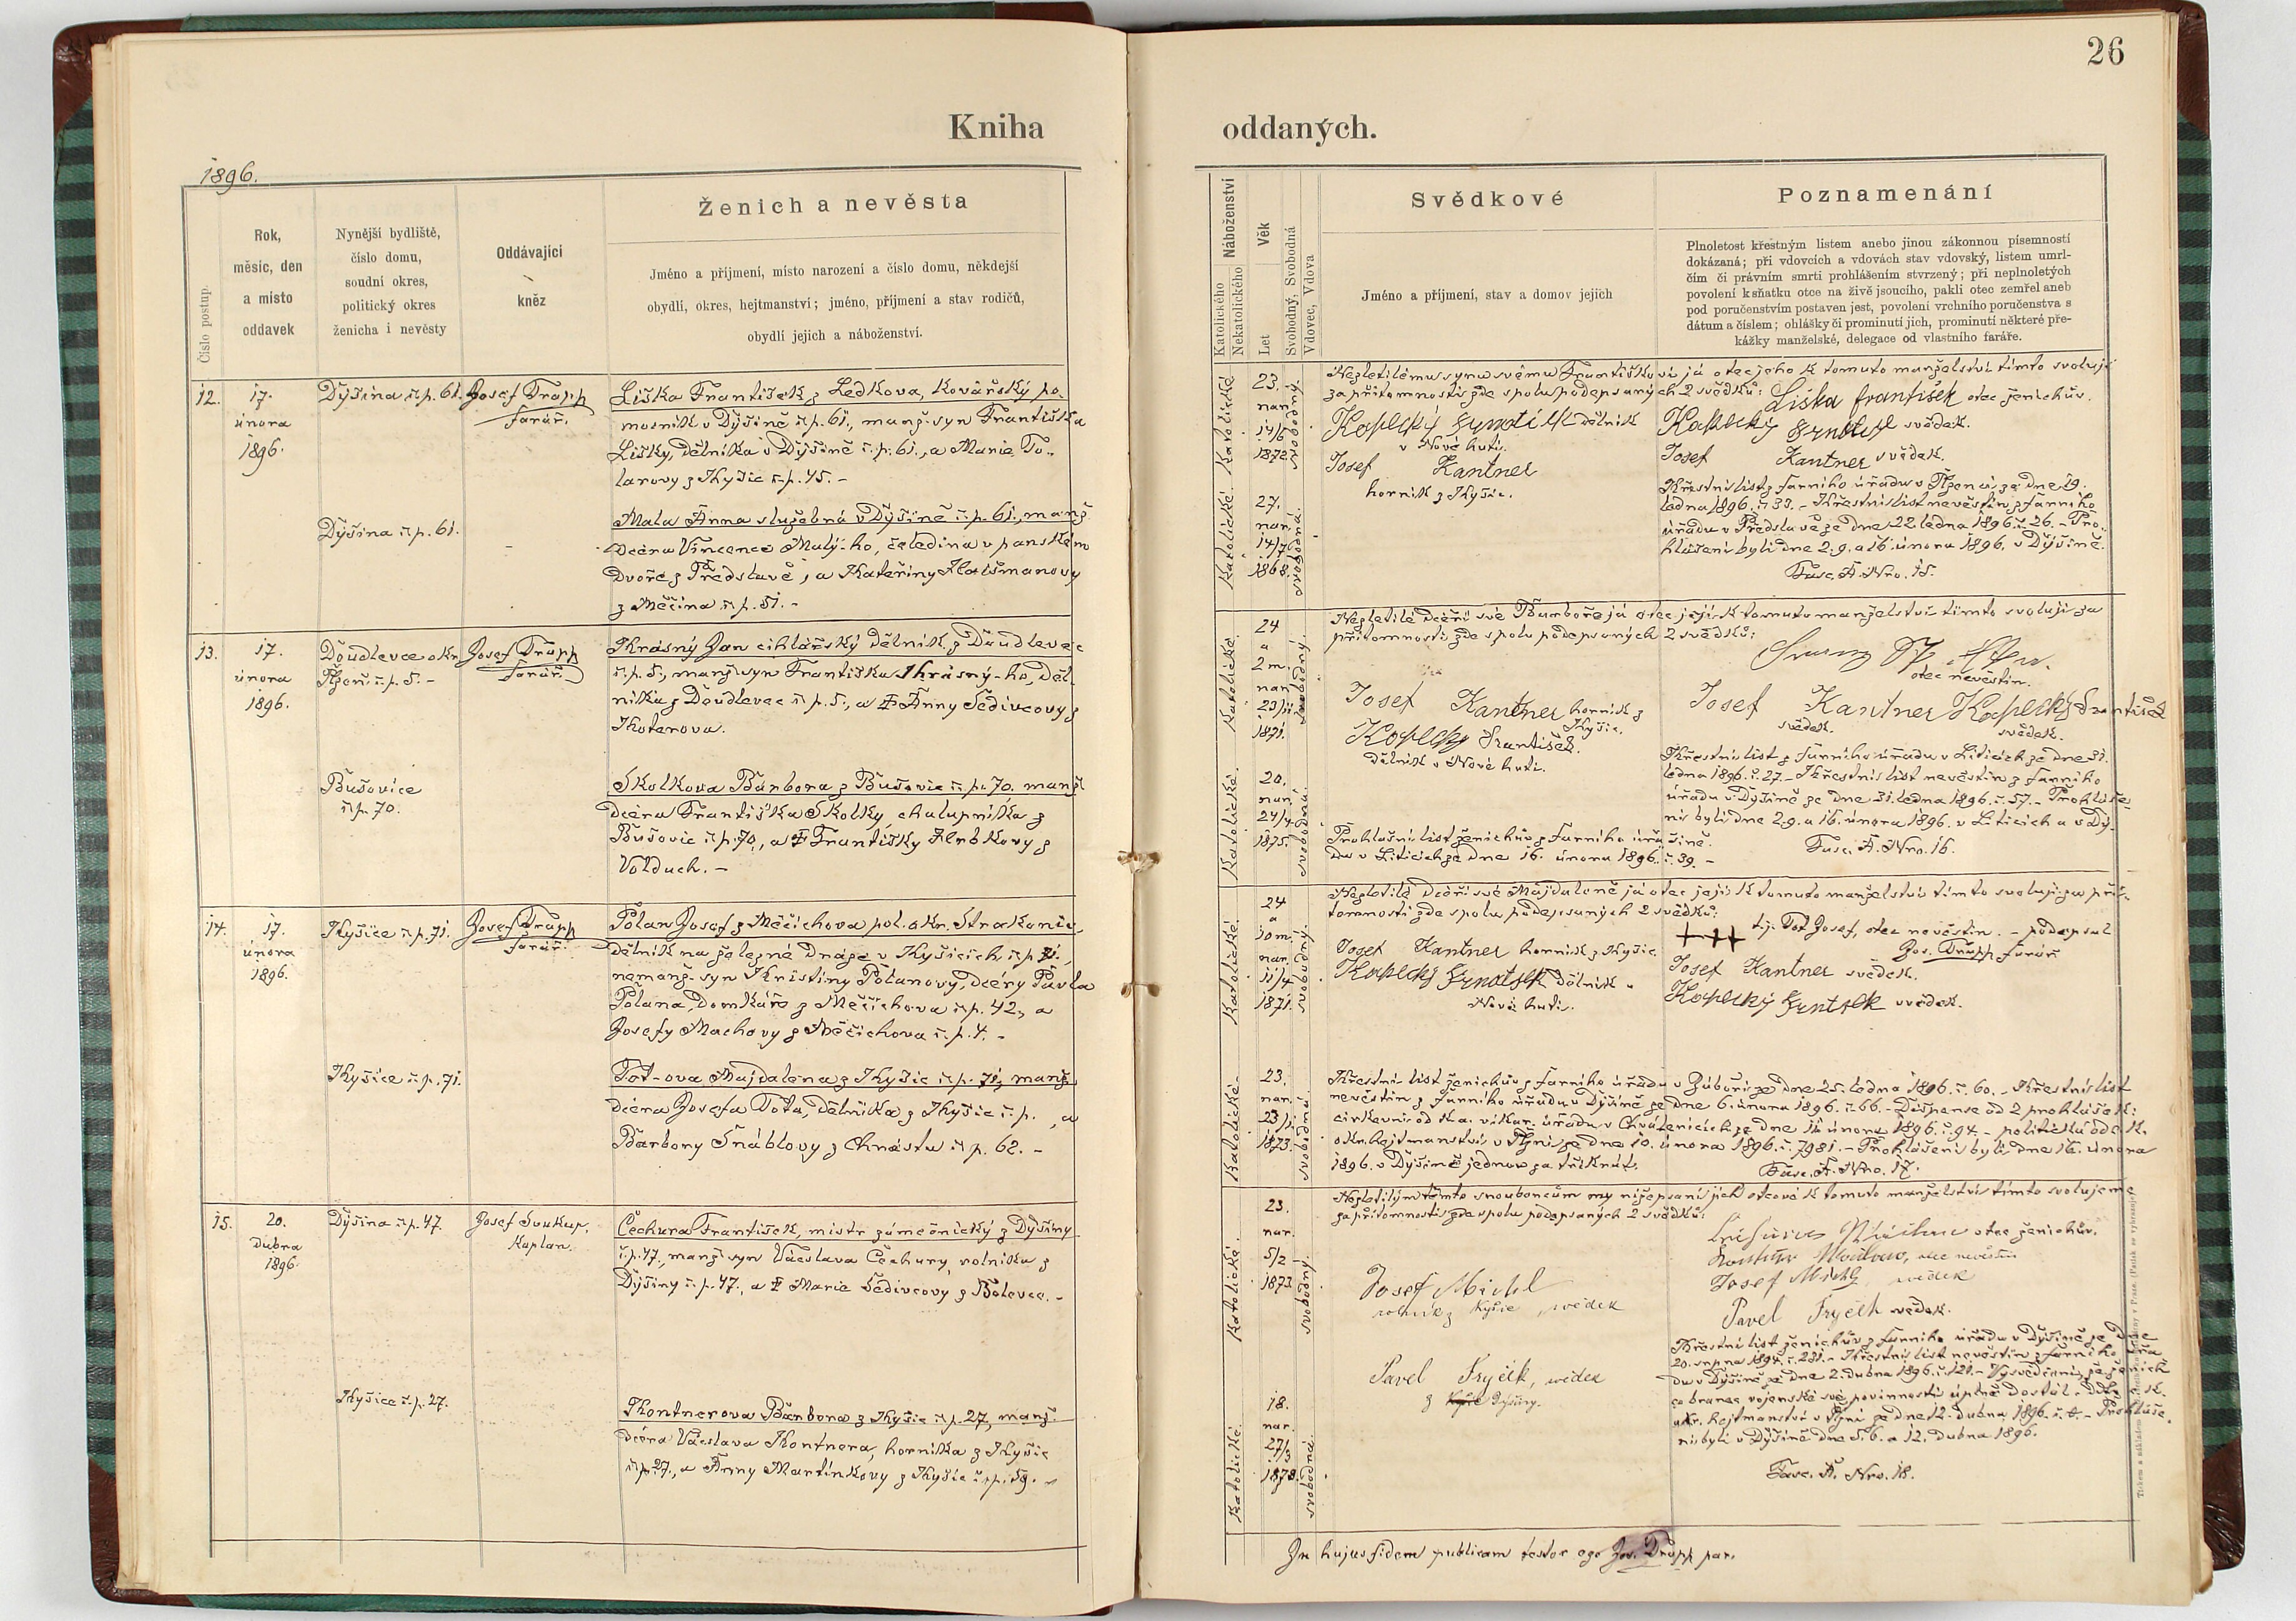 26
Kniha oddaných.
1896.
Číslo postup.
Rok,
měsíc, den
a místo
oddavek
Nynější bydliště,
číslo domu,
soudní okres,
politický okres
ženicha i nevěsty
Oddávající
kněz
Ženich a nevěsta
Jméno a příjmení, místo narození a číslo domu, někdejší
obydlí, okres, hejtmanství; jméno, příjmení a stav rodičů,
obydlí jejich a náboženství.
Náboženství
Katolického
Nekatolického
Věk
Let
Svobodný, Svobodná
Vdovec, Vdova
Svědkové
Jméno a příjmení, stav a domov jejich
Poznamenání
Plnoletost křestným listem anebo jinou zákonnou písemností
dokázaná; při vdovcích a vdovách stav vdovský, listem umrl-
čím či právním smrti prohlášením stvrzený; při neplnoletých
povolení k sňatku otce na živě jsoucího, pakli otec zemřel aneb
pod poručenstvím postaven jest, povolení vrchního poručenstva s
dátum a číslem; ohlášky či prominutí jich, prominutí některé pře-
kážky manželské, delegace od vlastního faráře.
12.
17.
února
1896.
Dýšina č.p. 61.
Josef Trapp
farář.
Liška František z Ledkova, kovářský po-
mocník v Dýšině č.p. 61., manž. syn Františka
Lišky, dělníka v Dýšině č.p. 61., a Marie To-
larovy z Kyšic č.p. 45. -
Dýšina č.p. 61.
Malá Anna služebná v Dýšině č.p. 61., manž.
dcera Vincence Malý-ho, čeledína v panském
dvoře z Předslavě, a Kateřiny
z Měčína č.p. 51. -
Katolické
23.
nar.
14/6
1872
svobodný.
Nezletilému synu svému Františkovi já otec jeho k tomuto manželství tímto svoluji
za přítomnosti zde spolupodepsaných 2 svědků: Liška František otec ženichův.
Kopecký dělník
v Nové huti.
Josef Kantner
horník z Kyšic.
Kopecký svědek.
Josef Kantner svědek.
Katolické.
27.
nar.
14/7
1868.
svobodná.
Křestní list z farního úřadu v Plzenci ze dne 19.
ledna 1896. č. 33. - Křestní list nevěstin z farního
úřadu v Předslavě ze dne 22. ledna 1896 č. 26. - Pro-
hlášení byli dne 2. 9. a 16. února 1896. v Dýšině.
Fasc. A. Nro. 15.
13.
17.
února
1896.
Doudlevce okr.
Plzeň č.p. 5. -
Josef Trapp
farář.
Krásný Jan cihlářský dělník z Doudlevec
č.p. 5., manž. syn Františka Krásný-ho, děl-
níka z Doudlevec č.p. 5., a † Anny Šedivcovy z
Koterova.
Bušovice
č.p. 70.
Skolkova Barbora z Bušovic č.p. 70. manž.
dcera Františka Skolky, chalupníka z
Bušovic č.p. 70., a † Františky Hrbkovy z
Volduch. -
Katolické.
24
a
2 m.
nar.
23/11
1871.
svobodný.
Nezletilé dceři své Barboře já otec její k tomuto manželství tímto svoluji za
přítomnosti zde spolu podepsaných 2 svědků:
otec nevěstin.
Josef Kantner horník z
Kyšic.
Kopecký František.
dělník v Nové huti.
Josef Kantner
svědek.
Kopecký František
svědek.
Katolické.
20.
nar.
24/4
1875.
svobodná.
Křestní list z farního úřadu v Liticích ze dne 31.
ledna 1896. č. 27. - Křestní list nevěstin z farního
úřadu v Dýšině ze dne 31. ledna 1896. č. 57. - Prohláše-
ni byli dne 2. 9. a 16. února 1896. v Liticích a v Dý-
šině. Fasc. A. Nro. 16.
Prohlašní list ženichův z farního úřa-
du v Liticích ze dne 16. února 1896. č. 39. -
14.
17.
února
1896.
Kyšice č.p. 71.
Josef Trapp
farář.
Polan Josef z Měčichova pol. okr. Strakonic,
dělník na železné dráze v Kyšicích č.p. 71.,
nemanž. syn Kristiny Polanovy, dcery Pavla
Polana, domkáře z Měčichova č.p. 42., a
Josefy Machovy z Měčichova č.p. 4. -
Kyšice č.p. 71.
Tot-ova Majdalena z Kyšic č.p. 71., manž.
dcera Josefa Tota, dělníka z Kyšic č.p. , a
Barbory Šnáblovy z Chrástu č.p. 62. -
Katolické.
24
a
10 m.
nar.
11/4
1871.
svobodný.
Nezletilé dceři své Majdaleně já otec její k tomuto manželství tímto svoluji za pří-
tomnosti zde spolu podepsaných 2 svědků:
+++ tj. Tot Josef, otec nevěstin. - podepsal
Jos. Trapp farář
Josef Kantner horník z Kyšic
Kopecký dělník v
Nové huti.
Josef Kantner svědek.
Kopecký svědek.
Katolické.
23.
nar.
23/1
1873.
svobodná.
Křestní list ženichův z farního úřadu v Záboří ze dne 25. ledna 1896. č. 60. - Křestní list
nevěstin z farního úřadu v Dýšině ze dne 6. února 1896. č. 66. - Dispense od 2 prohlášek:
církevní od k.a. vikar. úřadu v Chválenicích ze dne 11. února 1896. č. 94. - politická od c.k.
okr. hejtmanství v Plzni ze dne 10. února 1896. č. 7981. - Prohlášeni byli dne 16. února
1896. v Dýšině jednou za třikrát.
Fasc. A. Nro. 17.
15.
20.
dubna
1896.
Dýšina č.p. 47.
Josef Soukup,
kaplan.
Čechura František, mistr zámečnický z Dýšiny
č.p. 47., manž. syn Václava Čechury, rolníka z
Dýšiny č.p. 47., a † Marie Šedivcovy z Bolevec. -
Kyšice č.p. 27.
Kontnerova Barbora z Kyšic č.p. 27, manž.
dcera Václava Kontnera, horníka z Kyšic
č.p. 27., a Anny Martínkovy z Kyšic č.p. 59. -
Katolické.
23.
nar.
5/2
1873.
svobodný.
Nezletilým těmto snoubencům my nížepsaní jich otcové k tomuto manželství tímto svolujeme
za přítomnosti zde spolu podepsaných 2 svědků:
otec ženichův.
otec nevěstin
Josef Michl svědek
Pavel Fryček svědek.
Josef Michl
rolník z Kyšic, svědek
Pavel Fryček, svědek
z Kyšic Dýšiny.
Katolické.
18.
nar.
27/3
1878.
svobodná.
Křestní list ženichův z farního úřadu v Dýšině ze dne
20. srpna 1894. č. 281. - Křestní list nevěstin z farního úřa-
du v Dýšině ze dne 2. dubna 1896. č. 121. - Vysvědčení, že ženich
co branec vojenské své povinnosti úplně dostál.
okr. hejtmanství v Plzni ze dne 12. dubna 1896. - Prohláše-
ni byli v Dýšině dne 5. 6. a 12. dubna 1896.
Fasc. A. Nro. 18.
In hujus fidem publicam testor ego Jos. Trapp par.